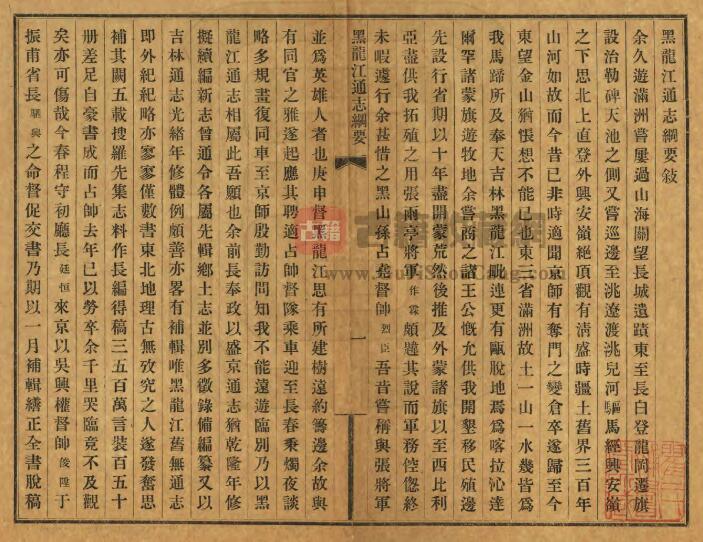 黑龍江通志綱要敍
余久遊滿洲嘗屢過山海關望長城遺蹟東至長白登龍岡遷旗
設治勒碑天池之側又嘗巡邊至洮遼渡洮兒河驅馬經興安嶺
之下思北上直登外興安嶺絕頂觀有淸盛時疆土舊界三百年
山河如故而今昔已非時適聞京師有奪門之變倉卒遂歸至今
東望金山猶悵想不能已也東三省滿洲故土一山一水幾皆爲
我馬蹄所及奉天吉林黑龍江毗連更有甌脫地焉爲喀拉沁達
爾罕諸蒙旗遊牧地余嘗商之諸王公慨允供我開墾移民殖邊
先設行省期以十年盡開蒙荒然後推及外蒙諸旗以至西比利
亞盡供我拓殖之用張雨亭將軍作霖頗韙其說而軍務倥傯終
未暇遑行余甚惜之黑山孫占鰲督帥烈臣吾昔嘗稱與張將軍
黑龍江通志綱要
一
並爲英雄人者也庚申督黑龍江思有所建樹遠約籌邊余故與
有同官之雅遂起應其聘適占帥督隊乘車迎至長春秉燭夜談
略多規畫復同車至京師殷勤訪問知我不能遠遊臨別乃以黑
龍江通志相屬此吾願也余前長奉政以盛京通志猶乾隆年修
擬續編新志曾通令各屬先輯鄉土志並別多徵錄備編纂又以
吉林通志光緒年修體例頗善亦畧有補輯唯黑龍江舊無通志
即外紀紀略亦寥寥僅數書東北地理古無攷究之人遂發奮思
補其闕五載搜羅先集志料作長編得稿三五百萬言裝百五十
册差足自豪書成而占帥去年已以勞卒余千里哭臨竟不及觀
矣亦可傷哉今春程守初廳長廷恒來京以吳興權督帥俊陞于
振甫省長駟興之命督促交書乃期以一月補輯繕正全書脫稿
古籍收藏網